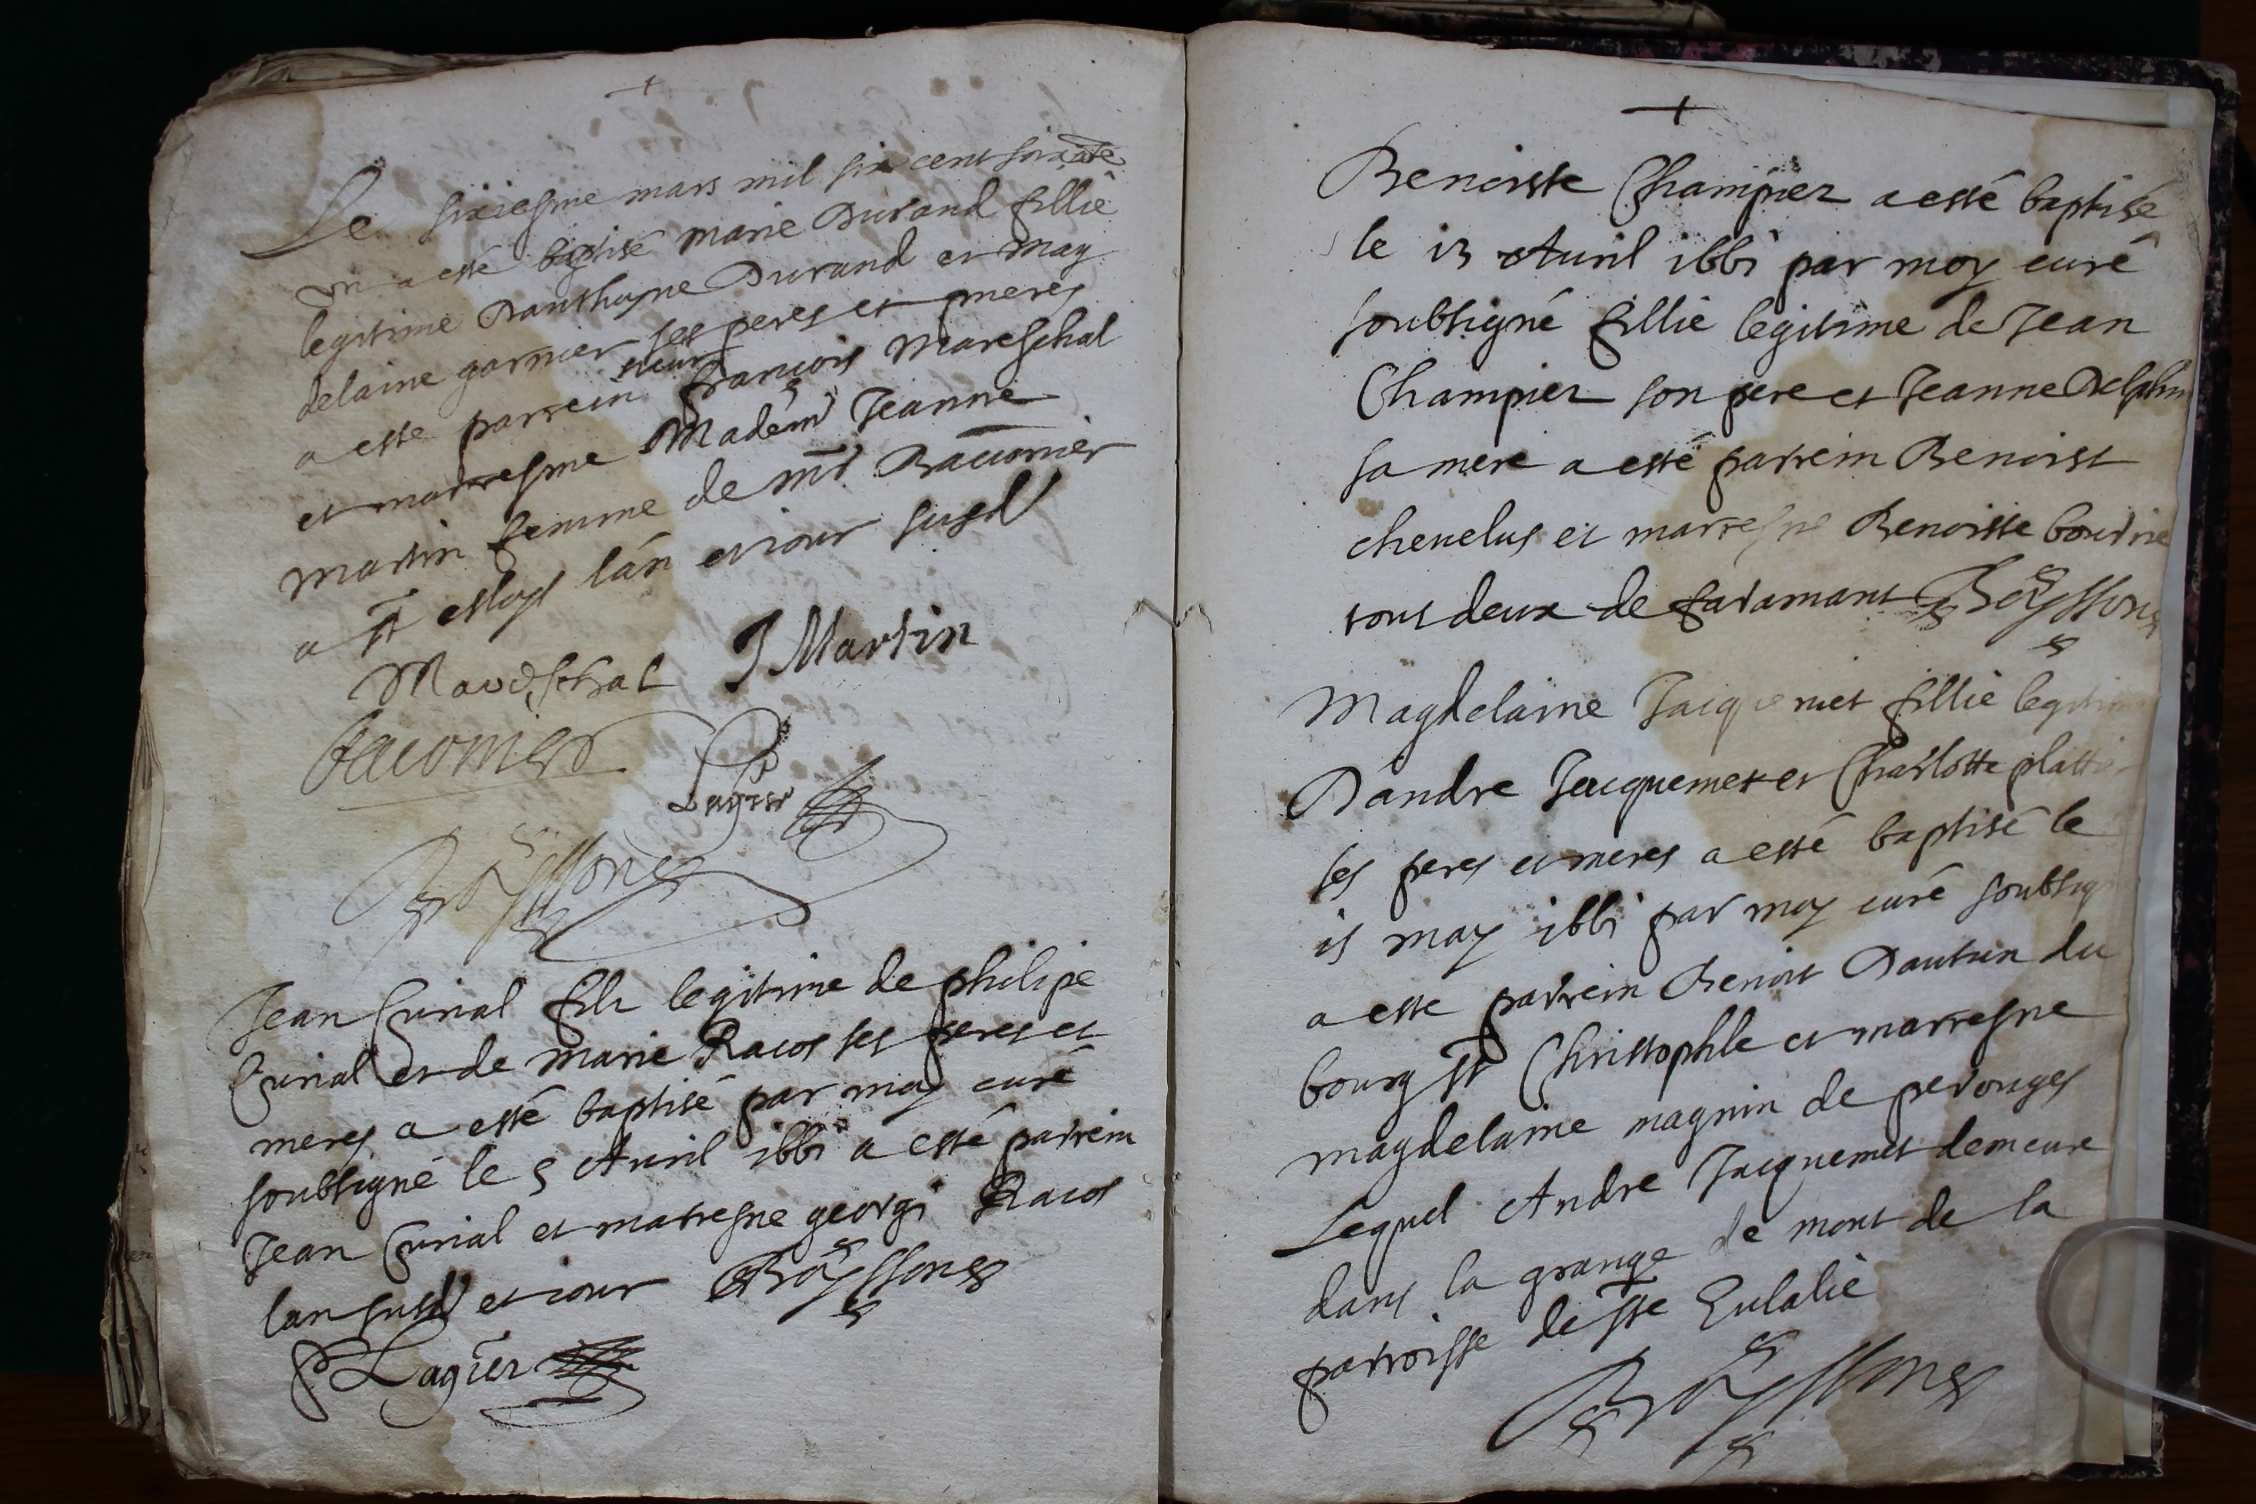 +
Le sixiesme mars mil six cent soixãte
vn a esté baptisé marie Durand fillie
legitime Danthoyne Durand et mag
delaine garnier ses peres et meres
a esté parrein sieur françois Mareschal
et marresme Madem Jeanne
martin femme de mr Bacconier
a st esloys lan et iour susd
Mareschal J Martin
Baconier
P Lagier
Boyssones
Jean Curial filz legitime de philipe
Curial et de marie Racos ses peres et
meres a esté baptisé par moy curé
soubsigné le 5 Auril 1661 a esté parrein
Jean Curial et marresne georgi Racos
lan susd et iour Boyssones
P Lagier
+
Benoiste Champier a esté baptisé
le 13 Auril 1661 par moy curé
soubsigné fillie legitime de Jean
Champier son pere et Jeanne Delphin
sa mere a esté parrein Benoist
chenelus et marresne Benoiste
tous deux de faramant Boyssones
Magdelaine Jacquemet fillie legitime
Dandre Jacquemet et Charlotte plattier
ses peres et meres a esté baptisé le
15 may 1661 par moy curé soubsigné
a esté parrein Benoit Dautun du
bourg st Christophle et marresne
magdelaine magnin de perouges
Lequel Andre Jacquemet demeure
dans la grange de mont de la
parroisse de ste Eulalie
Boyssones